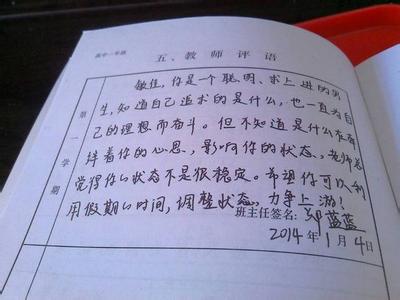 高中一年级
五、教师评语
第一学期
敏佳，你是一个聪明、求上进的男
生，知道自己追求的是什么，也一直为自
己的理想而奋斗。但不知道是什么在牵
绊着你的心思，影响你的状态，老师总
觉得你的状态不是很稳定。希望你可以利
用假期的时间，调整状态，力争上游！
班主任签名：邹蓝蓝
2014年1月4日